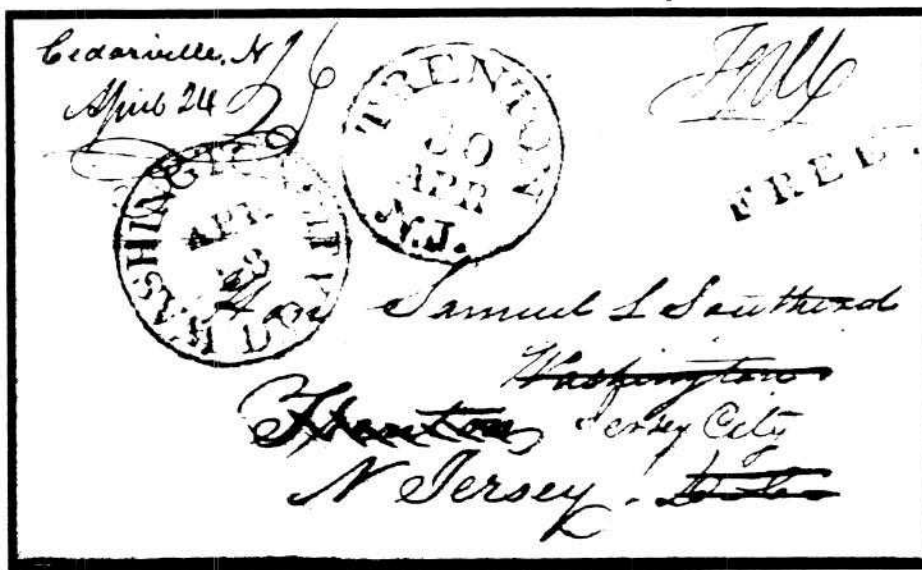 Cedarville, N J
April 24
TRENTON
30
APR
N.J.
FREE
WASHINGTON CITY
APR
28
Hon Samuel L Southard
Washington
Trenton, Jersey City
N Jersey.